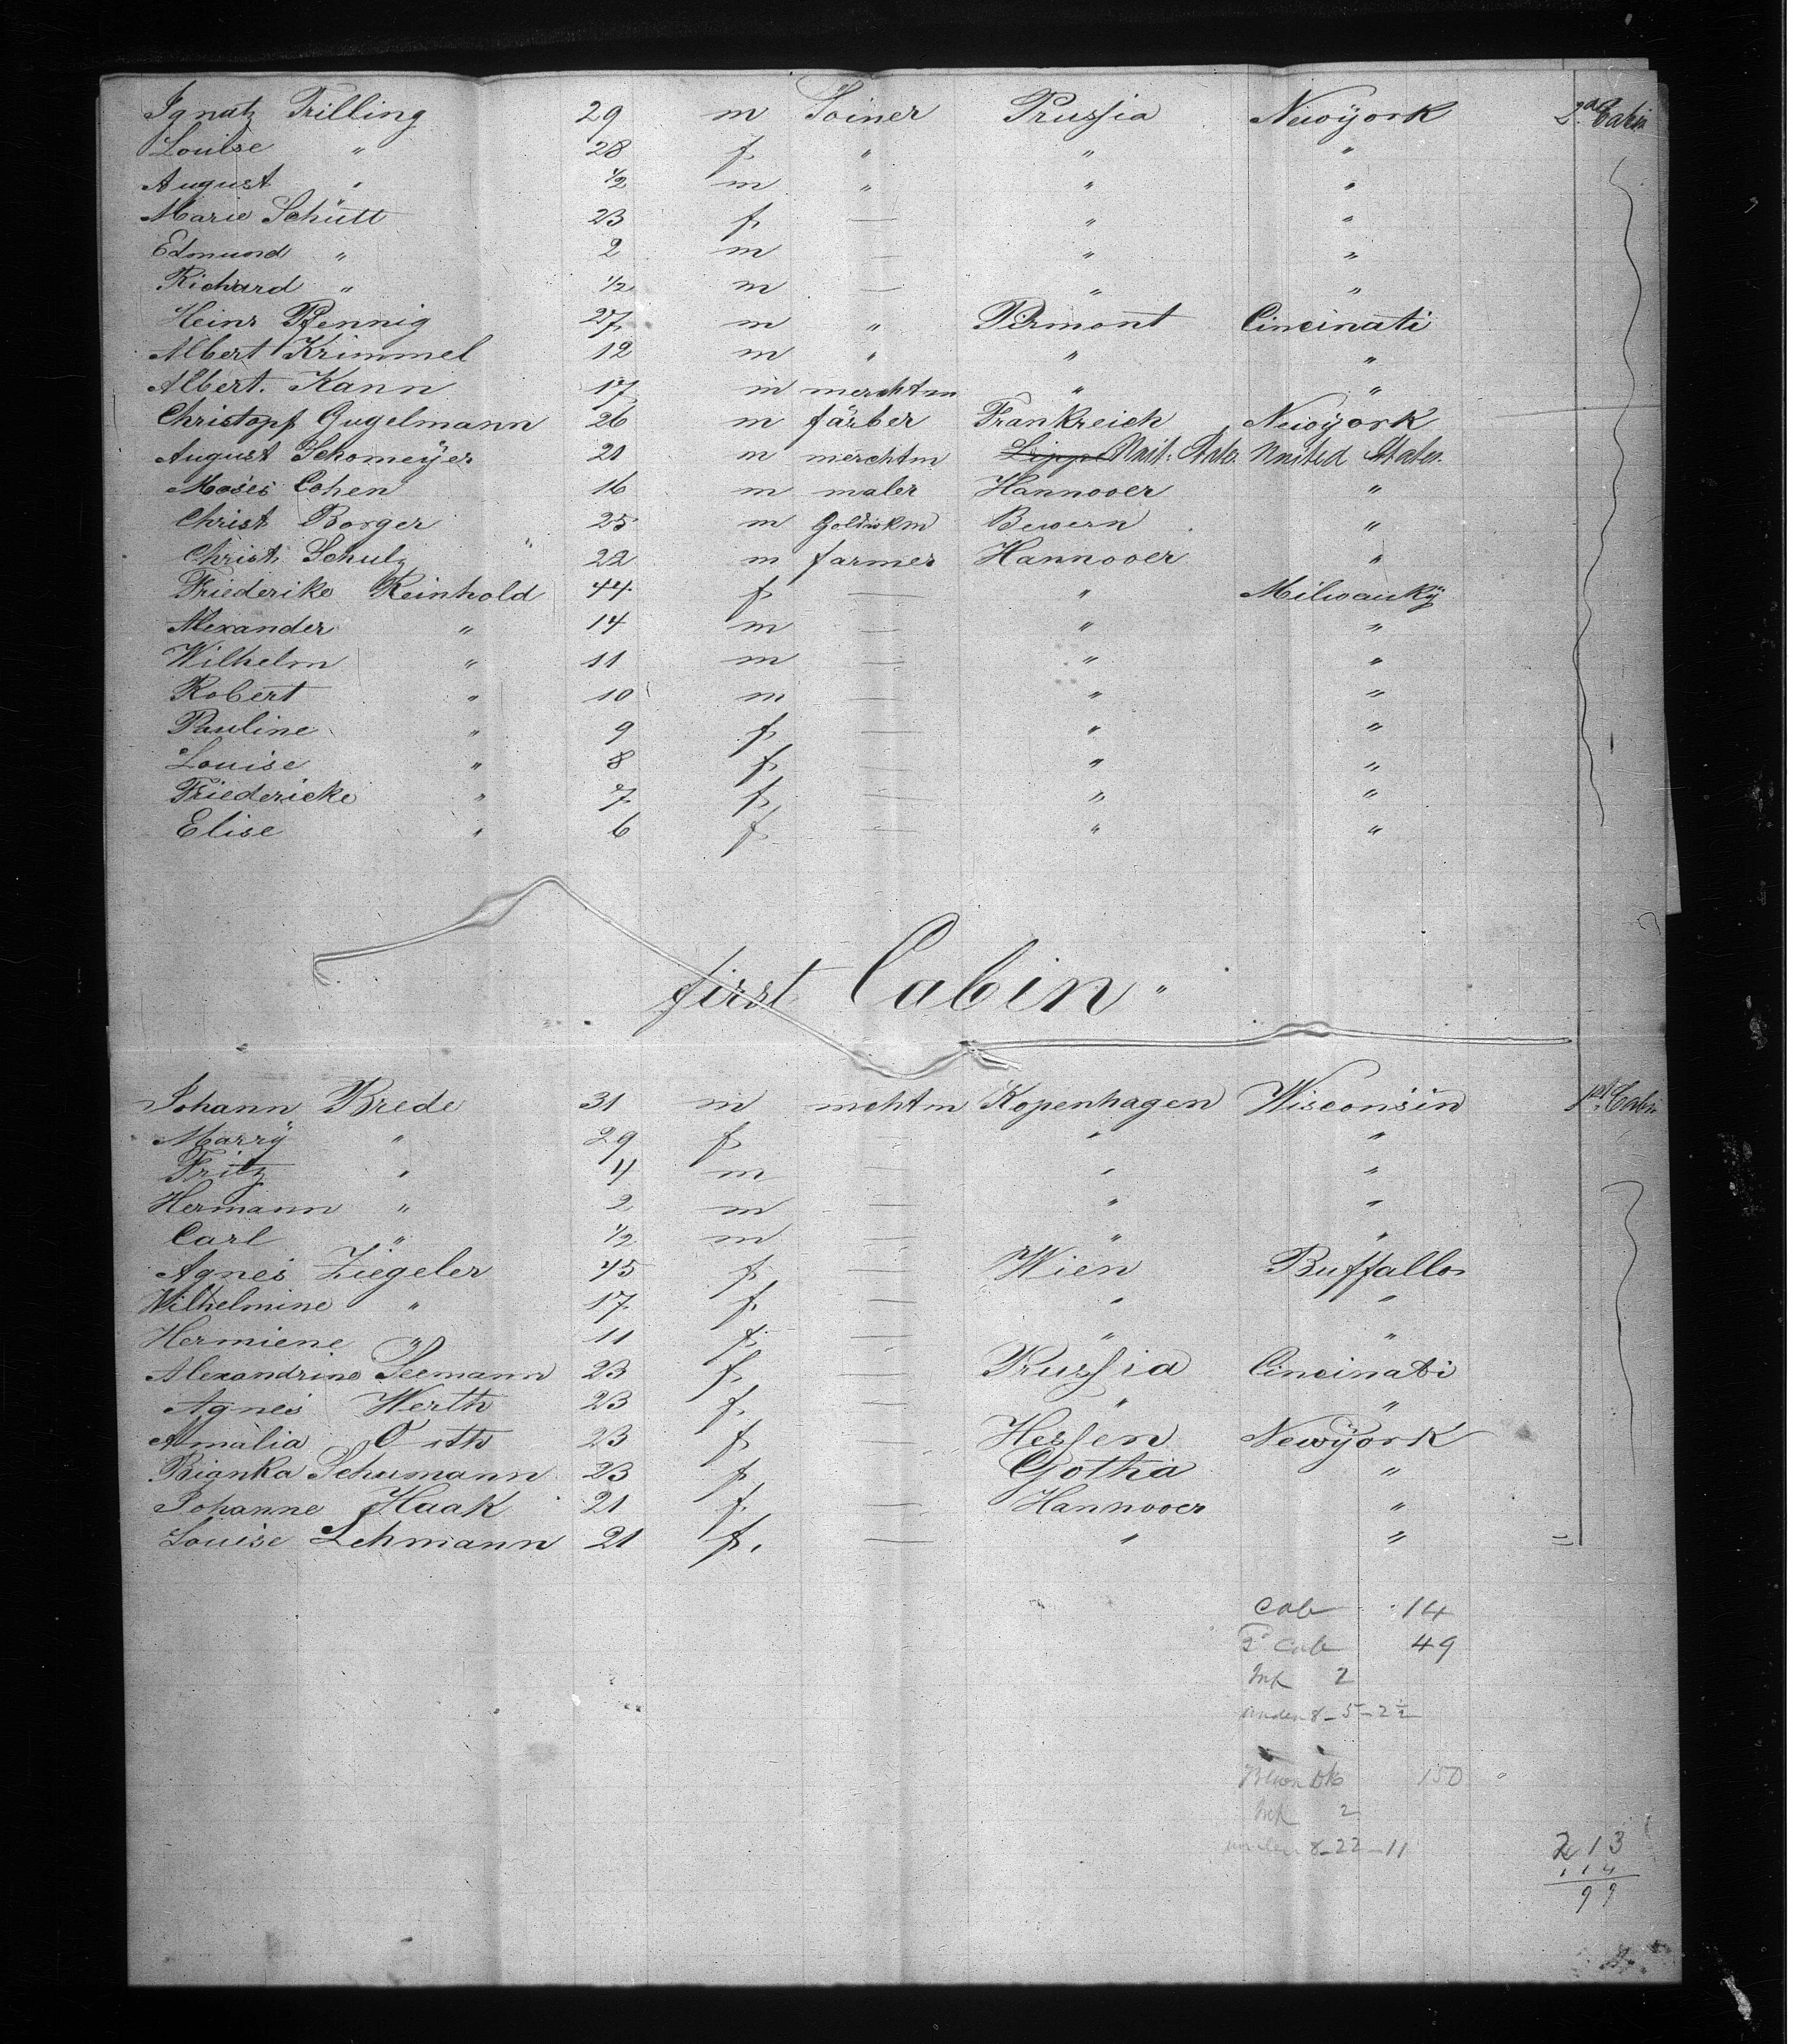 Ignatz Trilling 29 m Joiner Prussia Newÿork 2d Cabin
Louise " 28 f " " "
August " 1/2 m " " "
Marie Schütt 23 f — " "
Edmund " 2 m — " "
Richard " 1/2 m — " "
Heinr Pfennig 27 m " Pirmont Cincinati
Albert Krimmel 12 m " " "
Albert. Kann 17 m merchtm " "
Christopf Gugelmann 26 m färber Frankreich Newÿork
August Schomeÿer 21 m merchtm Lippe Unit: States. United States.
Moses Cohen 16 m maler Hannover "
Christ Borger 25 m Bevern "
Christ. Schulz 22 m farmer Hannover "
Friederike Reinhold 44 f — " Milwaukÿ
Alexander " 14 m — " "
Wilhelm " 11 m — " "
Robert " 10 m — " "
Pauline " 9 f — " "
Louise " 8 f — " "
Friedericke " 7 f — " "
Elise " 6 f — " "
first Cabin "
Johann Brede 31 m mchtm Kopenhagen Wisconsin 1st Cabin
Marrÿ " 29 f — " "
Fritz " 4 m — " "
Hermann " 2 m — " "
Carl " 1/2 m — " "
Agnes Ziegeler 45 f — Wien Buffallo
Wilhelmine " 17 f — " "
Hermiene " 11 f — " "
Alexandrine Seemann 23 f — Prussia Cincinati
Agnes Werth 23 f — " "
Amalia Orth 23 f — Hessen Newÿork
Bianka Schumann 23 f — Gotha "
Johanne Haak 21 f — Hannover "
Louise Lehmann 21 f. — " "
Cab 14
2d Cab 49
Inf 2
under 8 - 5 - 2 1/2
150 "
Inf 2
under 8 - 22 - 11
213
114
99